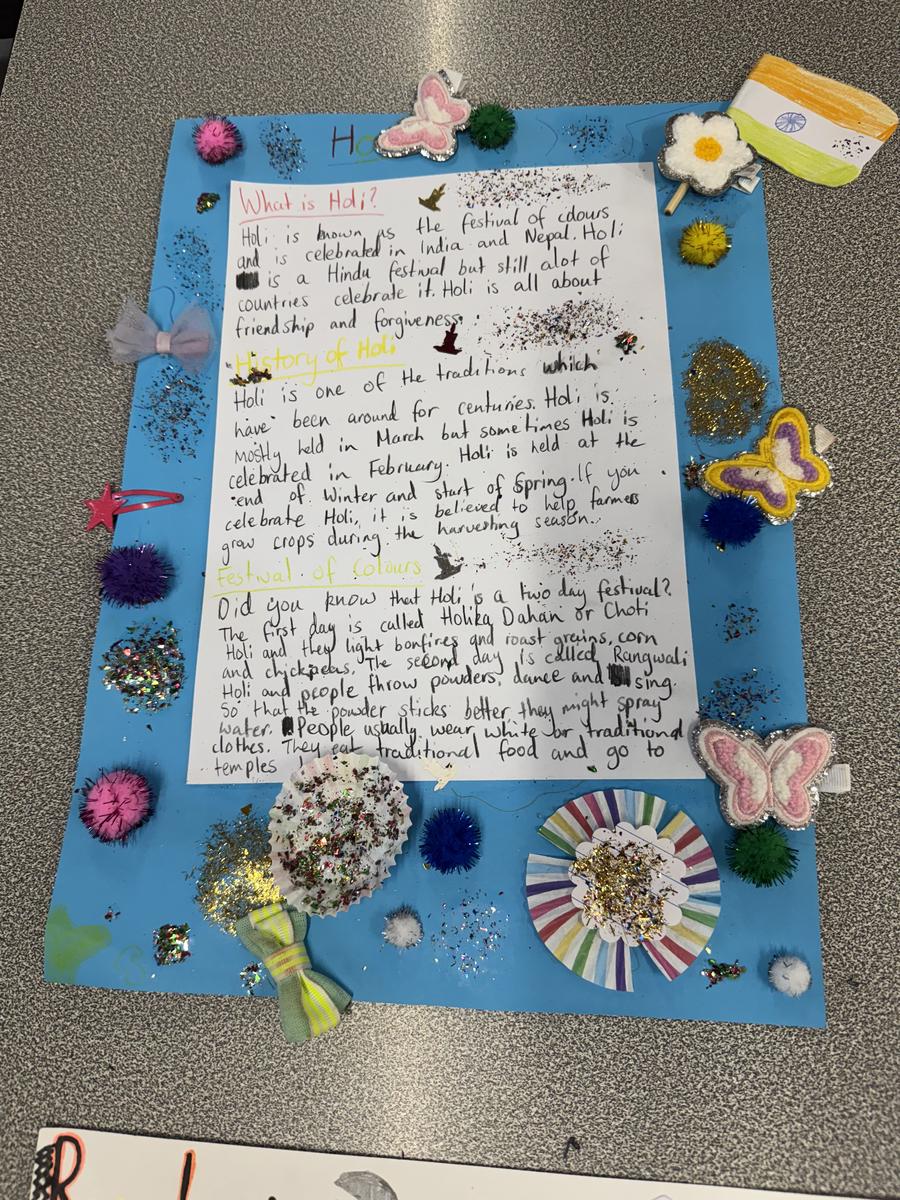 Ho
What is Holi?
Holi is known as the festival of colours
and is celebrated in India and Nepal. Holi
is a Hindu festival but still alot of
countries celebrate it. Holi is all about
friendship and forgiveness.
History of Holi
Holi is one of the traditions which
have been around for centuries. Holi is
mostly held in March but sometimes Holi is
celebrated in February. Holi is held at the
end of Winter and start of Spring. If you
celebrate Holi, it is believed to help farmers
grow crops during the harvesting season.
Festival of Colours
Did you know that Holi is a two day festival?
The first day is called Holika Dahan or Choti
Holi and they light bonfires and roast grains, corn
and chickpeas. The second day is called Rangwali
Holi and people throw powders, dance and sing.
So that the powder sticks better they might spray
water. People usually wear white or traditional
clothes. They eat traditional food and go to
temples